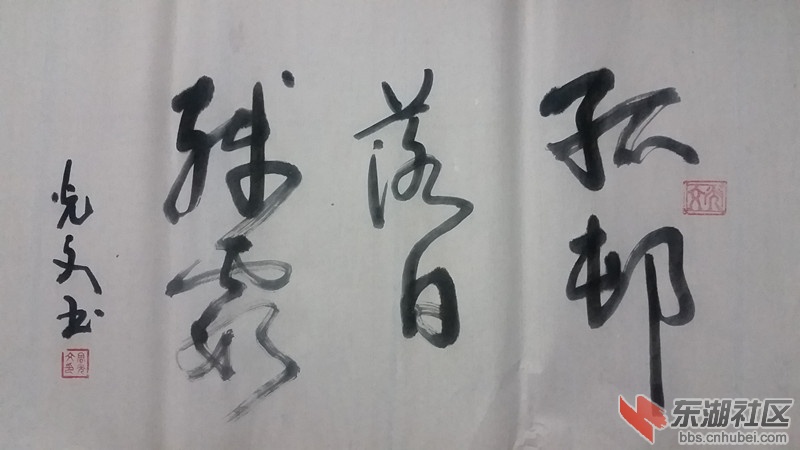 孤邨
落日
残霞
光文书
东湖社区
bbs.cnhubei.com